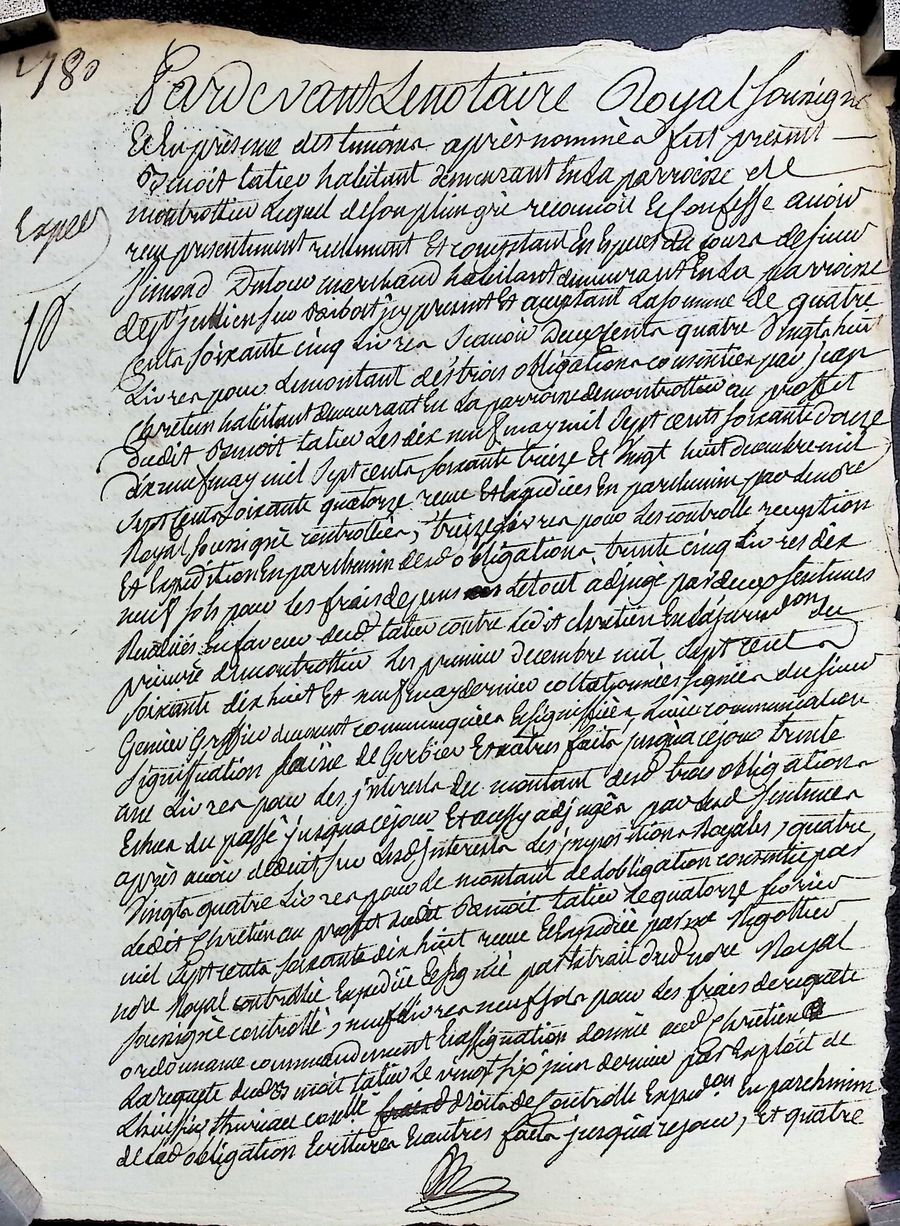 1780
Pardevant Le notaire Royal soussigné
Et En presence des temoins après nommés fut present
Benoit tatieu habitant demeurant En La parroisse de
montrottier Lequel de son plein gré reconnoit Et Confesse avoir
Exped
reçu presentement réelement Et comptant En Especes du Cours de sieur
Simond Dutour marchand habitant demeurant En La parroisse
de st jullien sur Bibost jcy present Et acceptant La somme de quatre
Cents soixante cinq Livres sçavoir Deux cents quatre Vingts huit
Livres pour Le montant des trois obligations consenties par jean
Chretien habitant demeurant En La parroisse de montrottier au proffit
dudit Benoit tatieu Les dix neuf may mil sept cents soixante douze
dix neuf may mil sept cents soixante treize Et Vingt huit decembre mil
sept cents soixante quatorze reçue Et Expediées En parchemin par Le no.re
Royal soussigné controllées, treize Livres pour Les controlle reception
Et Expedition En parchemin desd obligations, trente cinq Livres dix
neuf sols pour Les frais de juns Le tout adjugé par deux sentences
Rendües En faveur dud tatieu contre Ledit Chretien En La juridon du
prieuré de montrottier Les premier decembre mil sept cents
soixante dix huit Et neuf may dernier collationnées signées du sieur
Genieu Greffier duement communiquées Et signiffiées, Livre communication
signification saisie de Gerbier Et autres faits jusqu'a ce jour trente
une Livres pour les jnterests du montant desd trois obligations
Echus du passé jusqua ce jour Et aussy adjugés par lesd sentences
après avoir deduit sur Lesd jnterests Les jmpositions Royales, quatre
Vingts quatre Livres pour Le montant de Lobligation consentie par
Ledit Chretien au proffit dudit Benoit tatieu Le quatorze fevrier
mil sept cents soixante dix huit reçue Et Expediée par me Rigottier
no.re Royal controllée Expediée Et signée par Extrait dud no.re Royal
soussigné controllé, neuf Livres neuf sols pour Les frais de requete
ordonnance commandement Et assignation donnée aud Chretien a
La requete dud Benoit tatieu Le vingt six juin dernier par Exploit de
L'huissier Thuriau Caselle droits de Controlle Expedon En parchemin
de Lad obligation Ecritures Et autres faits jusqu'a ce jour, Et quatre